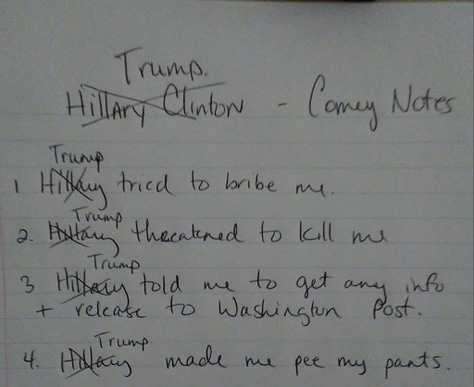 Trump.
Hillary Clinton - Comey Notes
Trump
1 Hillary tried to bribe me.
Trump
2. Hillary threatened to kill me
Trump
3 Hillary told me to get any info
+ release to Washington Post.
Trump
4. Hillary made me pee my pants.